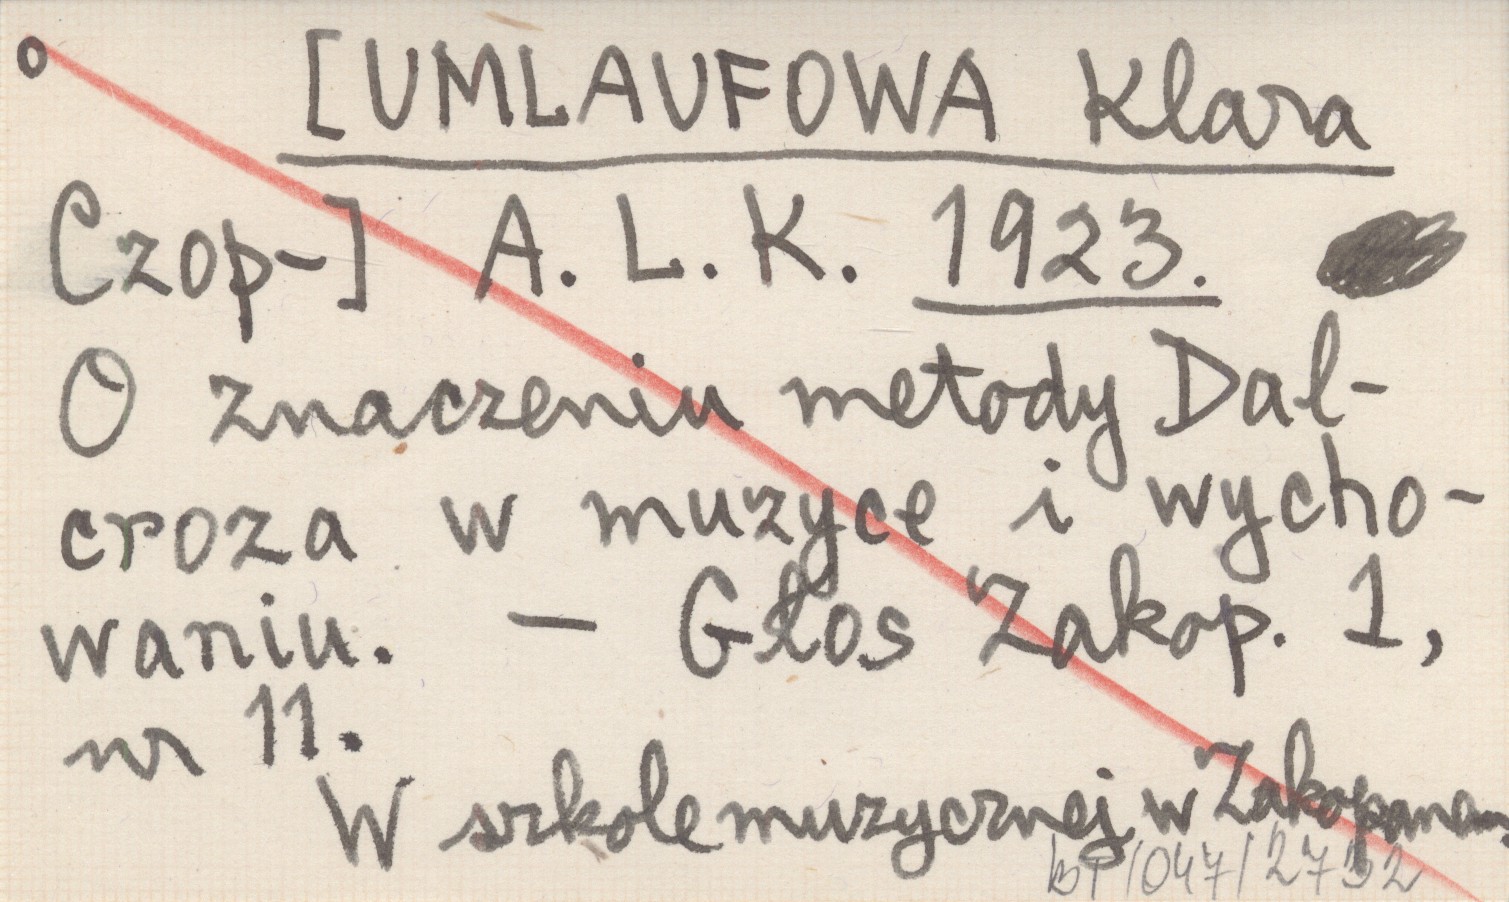 o [UMLAUFOWA Klara
Czop-] A. L. K. 1923.
O znaczeniu metody Dal-
croza w muzyce i wycho-
waniu. — Głos Zakop. 1,
nr 11.
W szkole muzycznej w Zakopanem
BT/047/2732